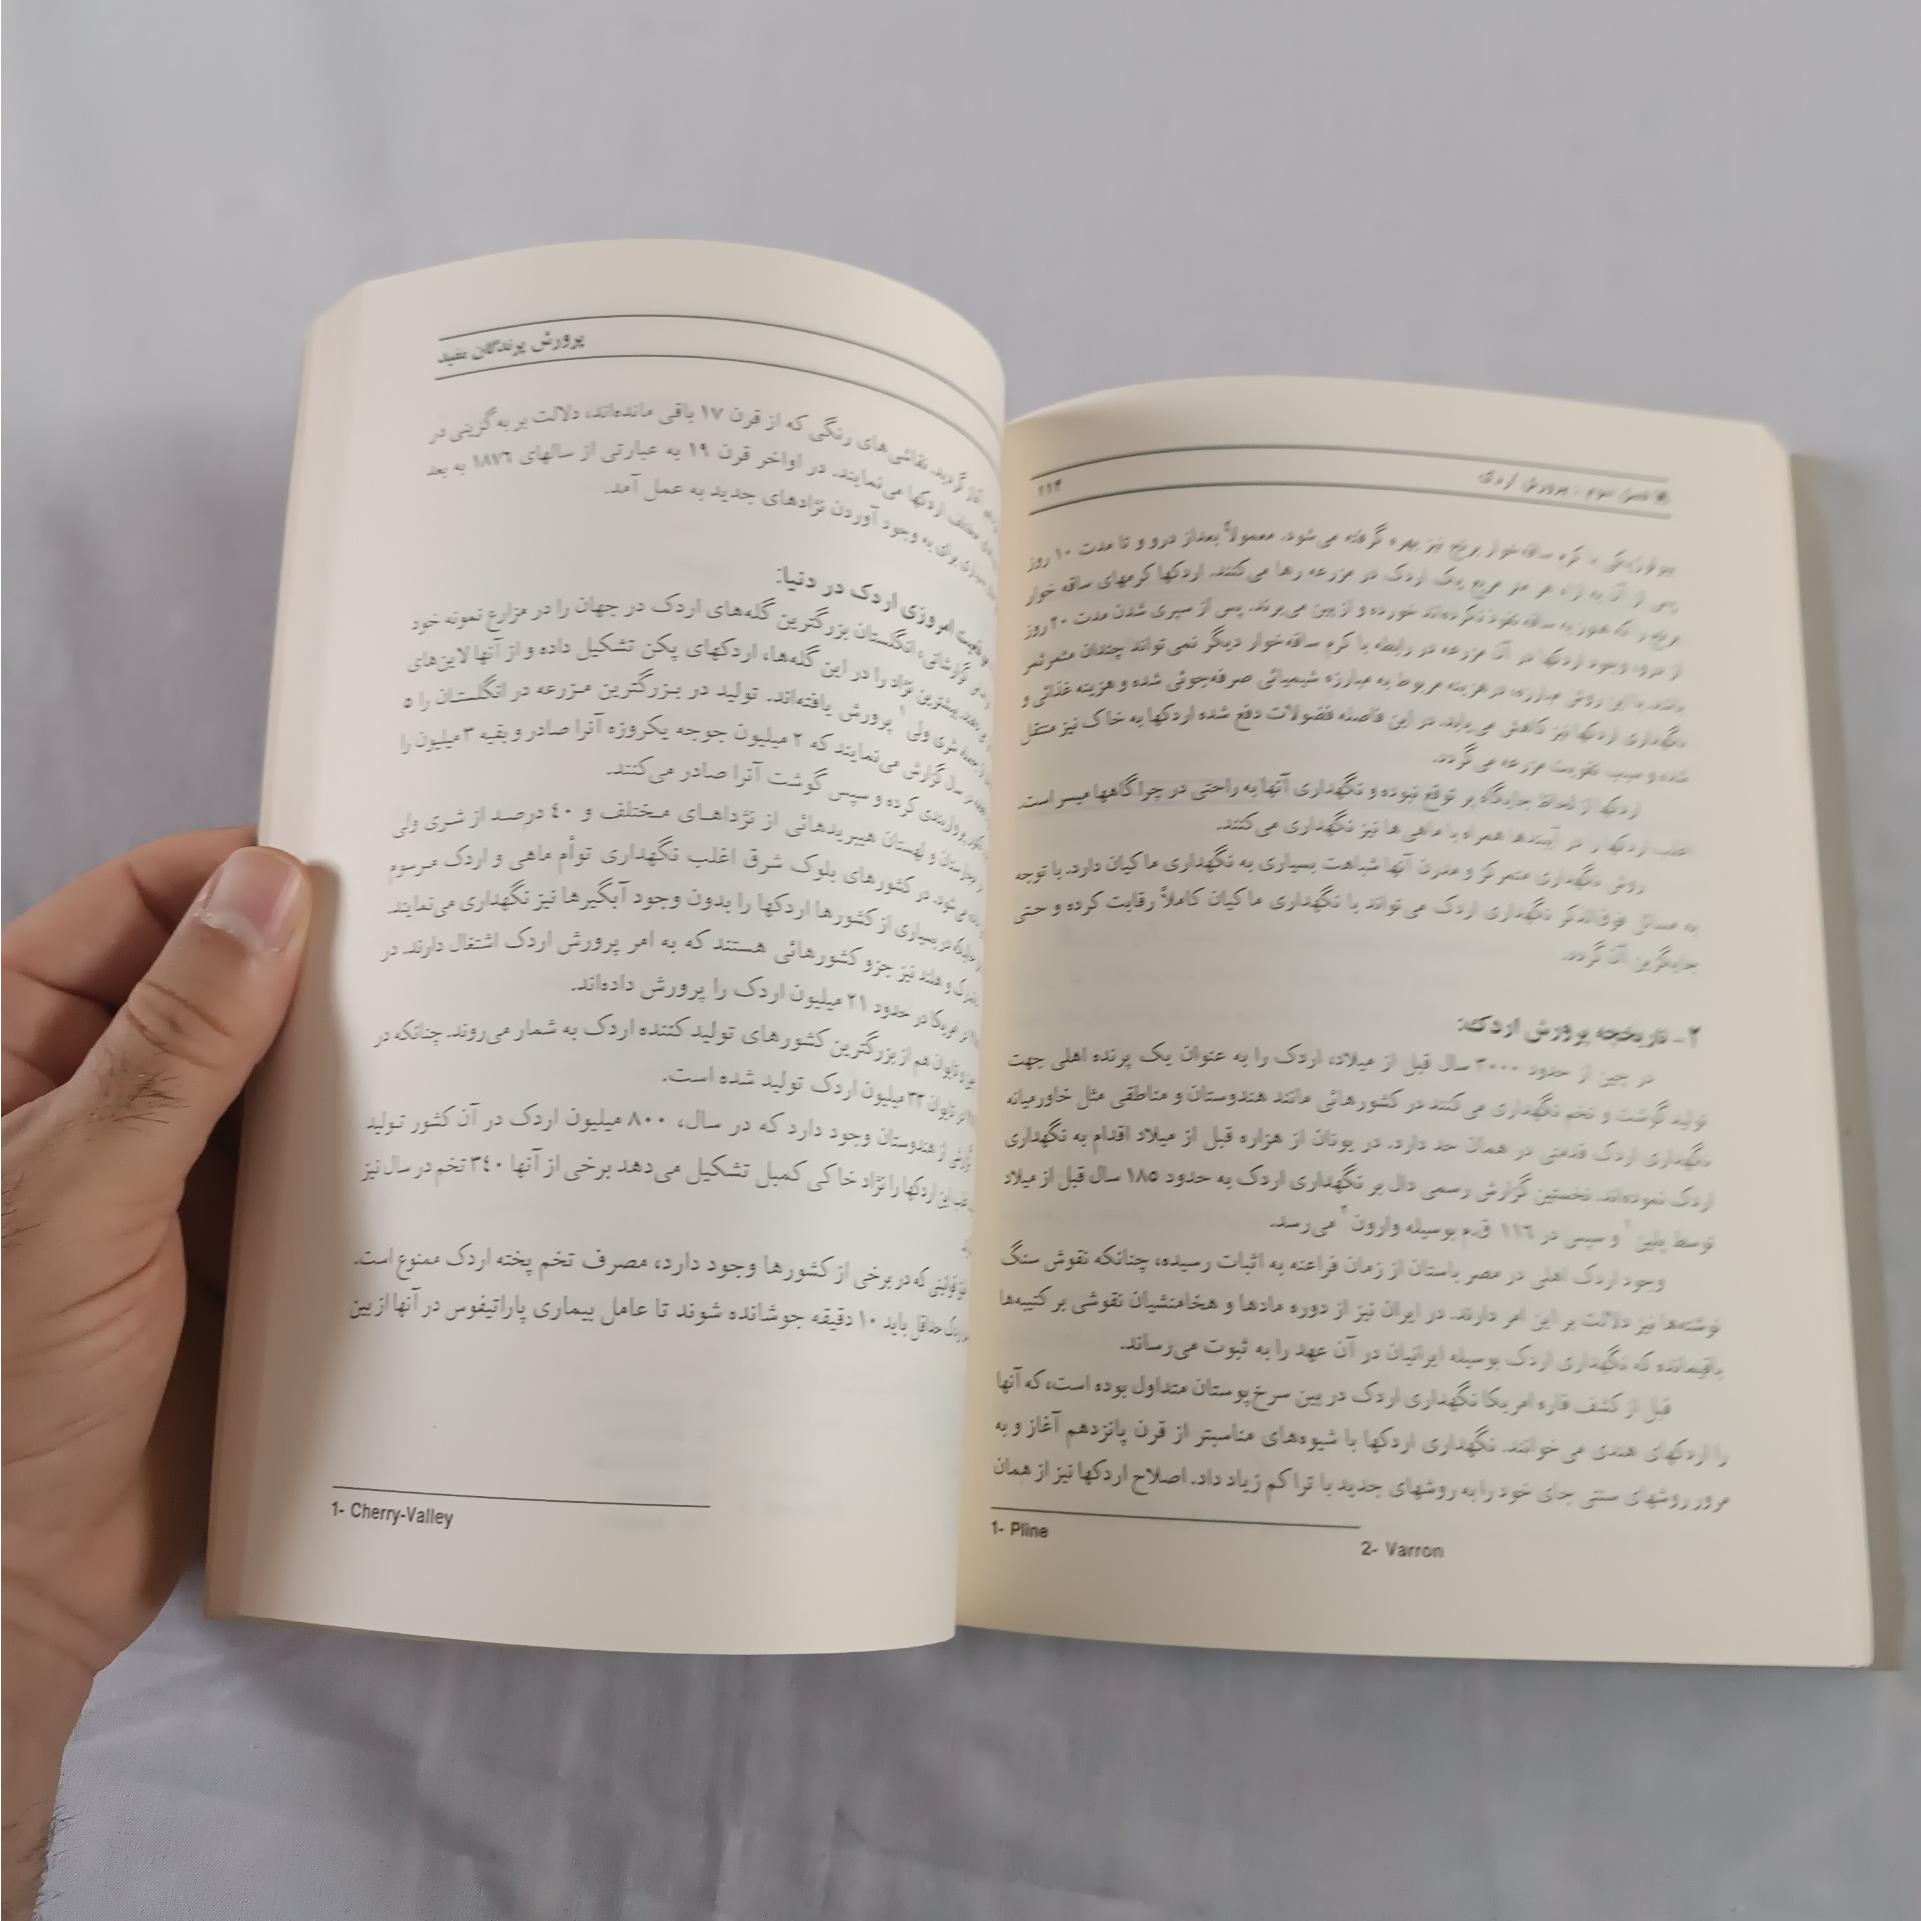 فصل سوم : پرورش اردک
۱۱۳
بیولوژیکی با کرم ساقه‌خوار برنج نیز بهره گرفته می‌شود. معمولاً بعد از درو و تا مدت ۱۰ روز
پس از آن به ازاء هر متر مربع یک اردک در مزرعه رها می‌کنند. اردکها کرمهای ساقه خوار
برنج را که هنوز به ساقه نفوذ نکرده‌اند خورده و از بین می‌برند. پس از سپری شدن مدت ۲۰ روز
از درو، وجود اردکها در آن مزرعه در رابطه با کرم ساقه‌خوار دیگر نمی‌تواند چندان مثمرثمر
باشد. با این روش مبارزه، در هزینه مربوط به مبارزه شیمیائی صرفه‌جوئی شده و هزینه غذائی و
نگهداری اردکها نیز کاهش می‌یابد. در این فاصله فضولات دفع شده اردکها به خاک نیز منتقل
شده و سبب تقویت مزرعه می‌گردد.
اردکها از لحاظ جایگاه پر توقع نبوده و نگهداری آنها به راحتی در چراگاهها میسر است.
اغلب اردکها را در آببندها همراه با ماهی‌ها نیز نگهداری می‌کنند.
روش نگهداری متمرکز و مدرن آنها شباهت بسیاری به نگهداری ماکیان دارد. با توجه
به مسائل فوق‌الذکر نگهداری اردک می‌تواند با نگهداری ماکیان کاملاً رقابت کرده و حتی
جایگزین آن گردد.
۲- تاریخچه پرورش اردک:
در چین از حدود ۳۰۰۰ سال قبل از میلاد، اردک را به عنوان یک پرنده اهلی جهت
تولید گوشت و تخم نگهداری می‌کنند در کشورهائی مانند هندوستان و مناطقی مثل خاورمیانه
نگهداری اردک قدمتی در همان حد دارد. در یونان از هزاره قبل از میلاد اقدام به نگهداری
اردک نموده‌اند. نخستین گزارش رسمی دال بر نگهداری اردک به حدود ۱۸۵ سال قبل از میلاد
توسط پلین ۱ و سپس در ۱۱۶ ق.م بوسیله وارون ۲ می‌رسد.
وجود اردک اهلی در مصر باستان از زمان فراعنه به اثبات رسیده، چنانکه نقوش سنگ
نوشته‌ها نیز دلالت بر این امر دارند. در ایران نیز از دوره مادها و هخامنشیان نقوشی بر کتیبه‌ها
باقیمانده که نگهداری اردک بوسیله ایرانیان در آن عهد را به ثبوت می‌رساند.
قبل از کشف قاره امریکا نگهداری اردک در بین سرخ‌پوستان متداول بوده است، که آنها
را اردکهای هندی می‌خوانند. نگهداری اردکها با شیوه‌های مناسبتر از قرن پانزدهم آغاز و به
مرور روشهای سنتی جای خود را به روشهای جدید با تراکم زیاد داد. اصلاح اردکها نیز از همان
1- Pline
2- Varron
پرورش پرندگان مفید
آغاز گردید. نقاشی‌های رنگی که از قرن ۱۷ باقی مانده‌اند، دلالت بر به گزینی در
مختلف اردکها می‌نمایند. در اواخر قرن ۱۹ به عبارتی از سالهای ۱۸۷۶ به بعد
برای به وجود آوردن نژادهای جدید به عمل آمد.
امروزی اردک در دنیا:
گزارشاتی، انگلستان بزرگترین گله‌های اردک در جهان را در مزارع نمونه خود
بیشترین نژاد را در این گله‌ها، اردکهای پکن تشکیل داده و از آنها لاین‌های
شری ولی ۱ پرورش یافته‌اند. تولید در بزرگترین مزرعه در انگلستان را ۵
در سال گزارش می‌نمایند که ۲ میلیون جوجه یکروزه آنرا صادر و بقیه ۳ میلیون را
پرواربندی کرده و سپس گوشت آنرا صادر می‌کنند.
و لهستان هیبریدهائی از نژداهای مختلف و ۴۰ درصد از شری ولی
می‌شود. در کشورهای بلوک شرق اغلب نگهداری توأم ماهی و اردک مرسوم
در بسیاری از کشورها اردکها را بدون وجود آبگیرها نیز نگهداری می‌نمایند.
و هلند نیز جزو کشورهائی هستند که به امر پرورش اردک اشتغال دارند. در
امریکا در حدود ۲۱ میلیون اردک را پرورش داده‌اند.
و تایوان هم از بزرگترین کشورهای تولید کننده اردک به شمار می‌روند. چنانکه در
تایوان ۳۲ میلیون اردک تولید شده است.
از هندوستان وجود دارد که در سال، ۸۰۰ میلیون اردک در آن کشور تولید
این اردکها را نژاد خاکی کمبل تشکیل می‌دهد برخی از آنها ۳۴۰ تخم در سال نیز
قوانینی که در برخی از کشورها وجود دارد، مصرف تخم پخته اردک ممنوع است.
حداقل باید ۱۰ دقیقه جوشانده شوند تا عامل بیماری پاراتیفوس در آنها از بین
1- Cherry-Valley